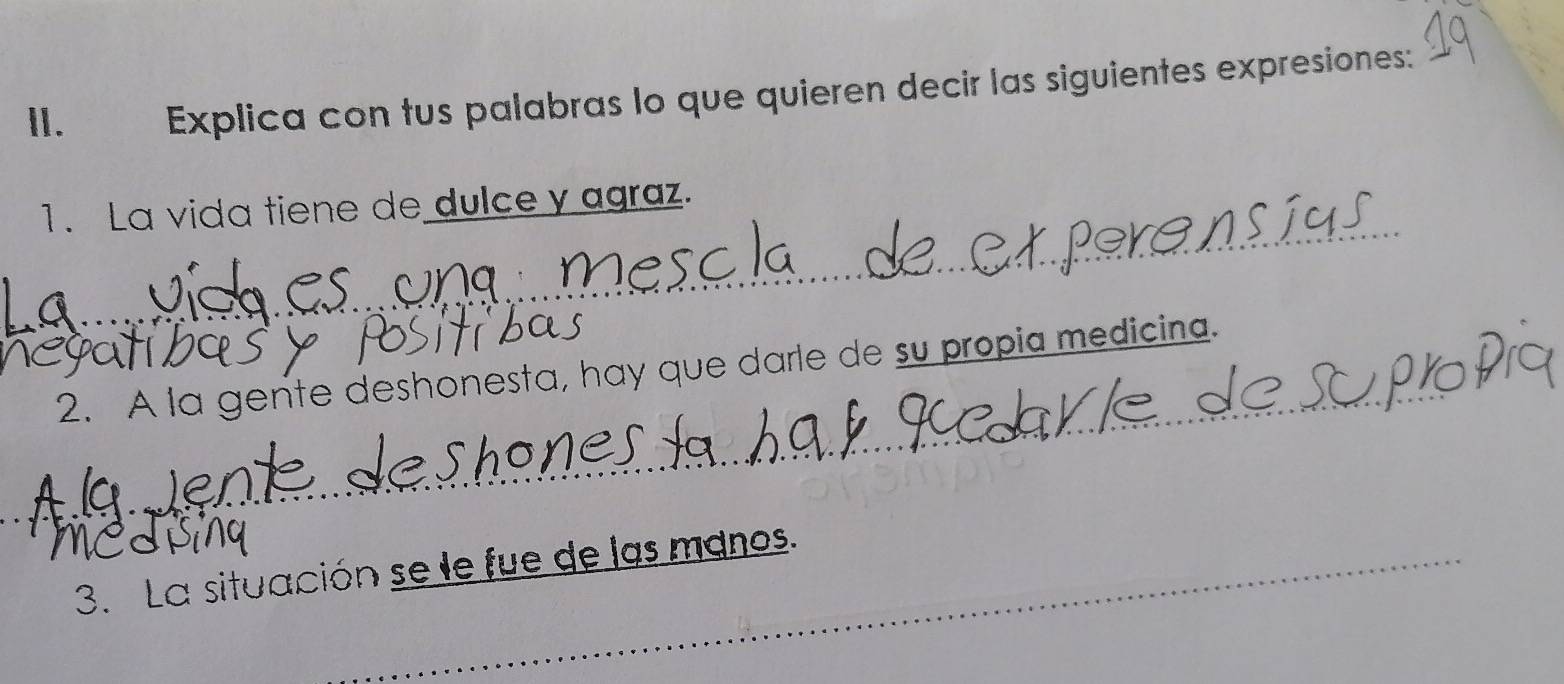 II. Explica con tus palabras lo que quieren decir las siguientes expresiones: 19
1. La vida tiene de dulce y agraz.
La vida es una mescla de experensias
negatibas y positibas
2. A la gente deshonesta, hay que darle de su propia medicina.
A la jente deshonesta hay quedarle de su propia
medisina
3. La situación se le fue de las manos.